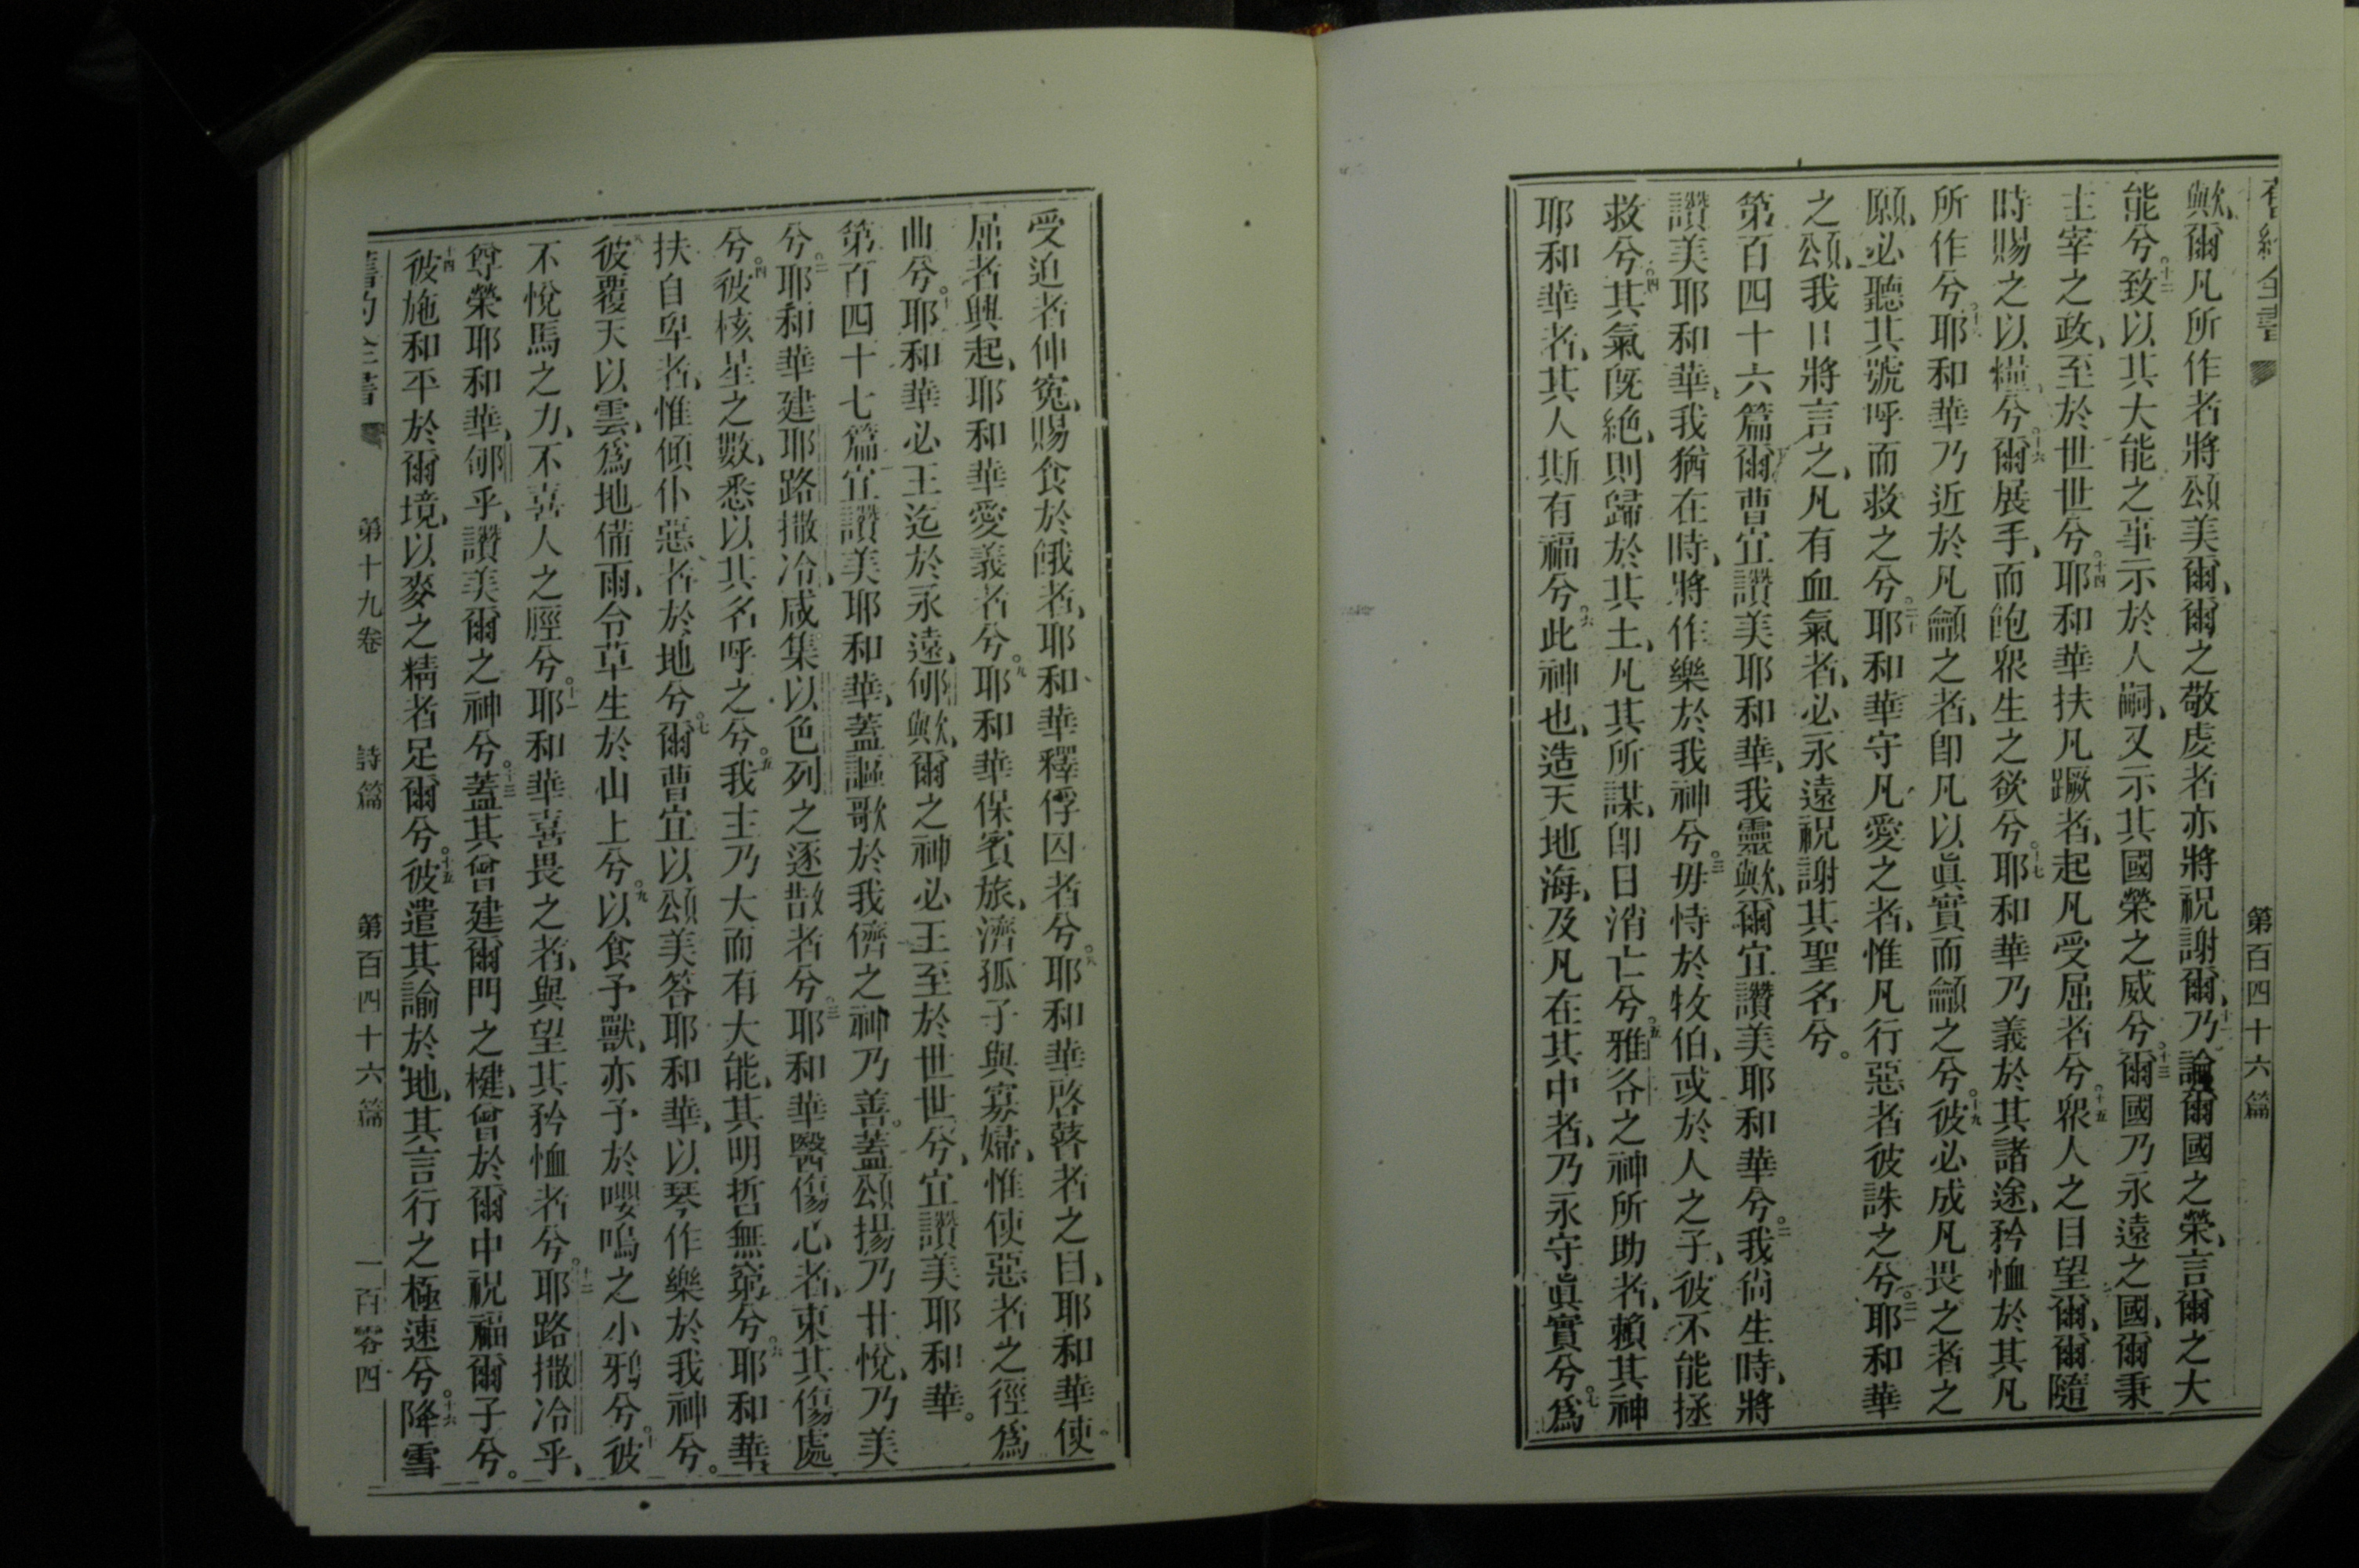 舊約全書
第百四十六篇
歟、爾凡所作者將頌美爾、爾之敬虔者亦將祝謝爾、十一乃論爾國之榮、言爾之大
能兮。十二致以其大能之事示於人嗣、又示其國榮之威兮。十三爾國乃永遠之國、爾秉
主宰之政、至於世世兮。十四耶和華扶凡蹶者、起凡受屈者兮。十五衆人之目望爾、爾隨
時賜之以糧兮。十六爾展手、而飽衆生之欲兮。十七耶和華乃義於其諸途、矜恤於其凡
所作兮。十八耶和華乃近於凡龥之者、卽凡以眞實而龥之兮。十九彼必成凡畏之者之
願、必聽其號呼而救之兮。二十耶和華守凡愛之者、惟凡行惡者彼誅之兮。二一耶和華
之頌、我口將言之、凡有血氣者、必永遠祝謝其聖名兮。
第百四十六篇 爾曹宜讚美耶和華、我靈歟、爾宜讚美耶和華兮。二我尚生時、將
讚美耶和華、我猶在時、將作樂於我神兮。三毋恃於牧伯、或於人之子、彼不能拯
救兮。四其氣旣絶、則歸於其土、凡其所謀、卽日消亡兮。五雅各之神所助者、賴其神
耶和華者、其人斯有福兮。六此神也、造天地海、及凡在其中者、乃永守眞實兮。七爲
受迫者伸寃、賜食於餓者、耶和華釋俘囚者兮。八耶和華啓瞽者之目、耶和華使
屈者興起、耶和華愛義者兮。九耶和華保賓旅、濟孤子與寡婦、惟使惡者之徑爲
曲兮。十耶和華必王迄於永遠、郇歟、爾之神必王至於世世兮、宜讚美耶和華。
第百四十七篇 宜讚美耶和華、蓋謳歌於我儕之神乃善。蓋頌揚乃甘悅、乃美
兮。二耶和華建耶路撒冷、咸集以色列之逐散者兮。三耶和華醫傷心者、束其傷處
兮。四彼核星之數、悉以其名呼之兮。五我主乃大而有大能、其明哲無窮兮。六耶和華
扶自卑者、惟傾仆惡者於地兮。七爾曹宜以頌美答耶和華、以琴作樂於我神兮。
八彼覆天以雲、爲地備雨、令草生於山上兮。九以食予獸、亦予於嚶嗚之小鴉兮。十彼
不悅馬之力、不喜人之脛兮。十一耶和華喜畏之者、與望其矜恤者兮。十二耶路撒冷乎、
尊榮耶和華、郇乎、讚美爾之神兮。十三蓋其曾建爾門之楗、曾於爾中祝福爾子兮。
十四彼施和平於爾境、以麥之精者足爾兮。十五彼遣其諭於地、其言行之極速兮。十六降雪
舊約全書 第十九卷 詩篇 第百四十六篇 一百零四